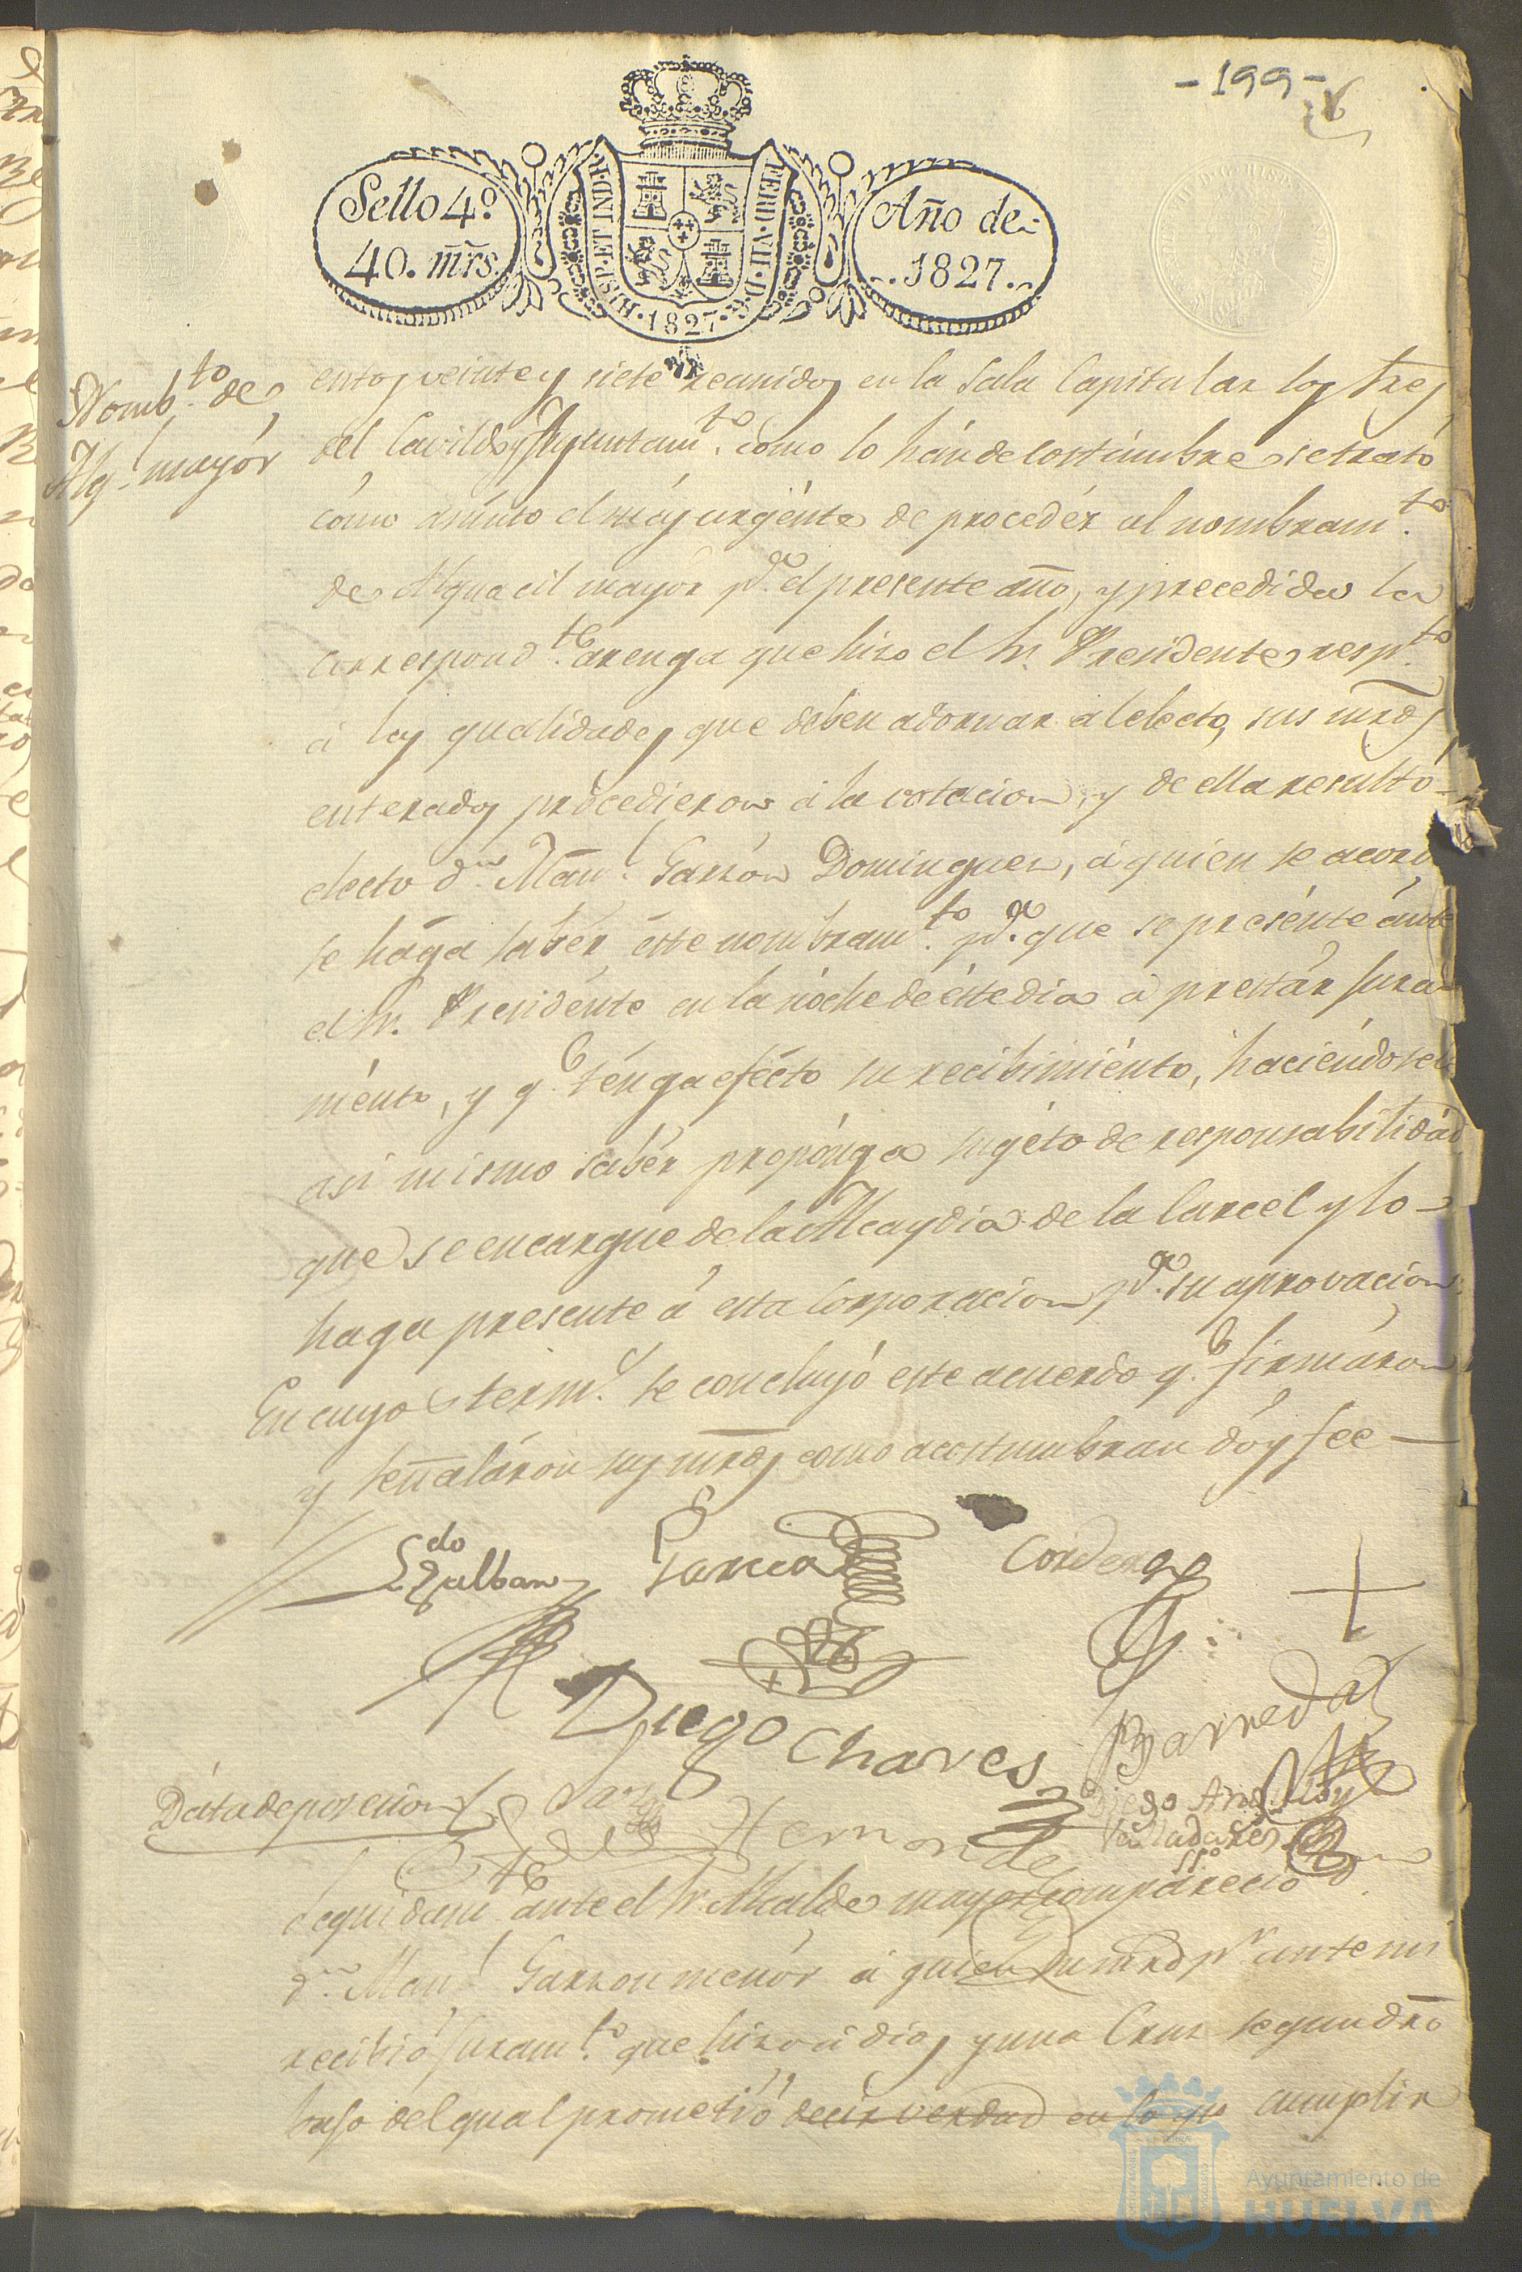 -199-
Sello 4º
40. mrs.
HISP. ET IND. R.
FERD. VII. D. G.
·1827·
Año de
1827.
Nomb.to de
Alg.l mayór
entos veinte y siete reunidos en la Sala Capitular los Sres
del Cavildo y Ayuntam.to como lo hán de costúmbre se trató
cómo asúnto el más urgénte de procedér al nombram.to
de Alguacil mayor p.a el presente año, y precedida la
correspond.te arenga que hizo el Sr. Presidente resp.to
á las qualidades que deben adornar al electo, sus mrds
enterados procedieron á la votacion, y de ella resultó
electo d.n Man.l Garzón Dominguez, á quien se acord
se hága sabér éste nombram.to p.a que se presénte ánte
el Sr. Presidénte en la nóche de éste dia á prestár Jura
ménto, y q.e ténga efécto su recibimiénto, haciéndosele
asi mismo sabér propónga sugéto de responsabilidád
que se encargue de la Alcaydia de la Carcel y lo
haga presente á esta Corporacion p.a su aprovacion
En cuyos term.s se concluyó este acuerdo q.e firmáron
y señaláron sus mrds como acostumbran dóy fee
L.do Zalban
Garcia
Cordero
Diego Chaves
Barreda
Hernande
Diego Ant.
Valladares
SS.no
Dáta de posesion
Seguidam.te ánte el Sr. Alcalde mayor compáreció
d.n Man.l Garzon menór á quien su mrd p.r ante mi
recibió Juram.to que hizo á dios y una Cruz segun dro
bajo del qual prometió decir verdad en lo que cumplir
Ayuntamiento de
HUELVA